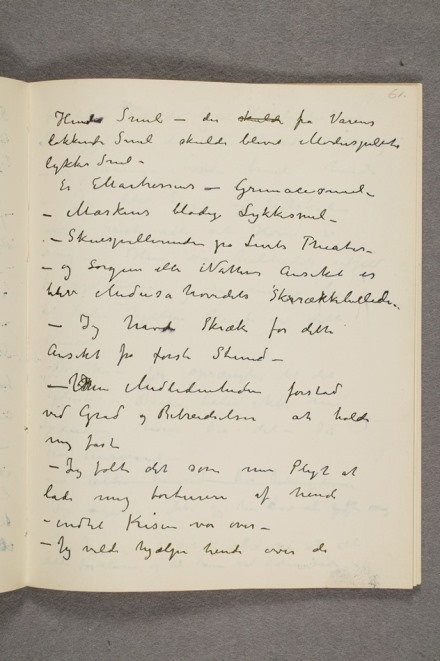 61.
Hendes Smil — der skulde fra Vaarens
lokkende Smil skulde blive Moderspillets
lykke Smil —
Er Martressens — Grimacesmil —
— Maskens blodige Lykkesmil —
— Skuespillerinden fra Livets Theater —
— og Sorgen eller Nattens Ansikt er
blev Medusa hovedets Skrækkbillede.
— Jeg havde Skræk for dette
Ansikt fra første Stund —
— Medlidenheden forstod
ved Graad og Bebreidelser at holde
mig fast
— Jeg følte det som min Pligt at
lade mig torturere af hende
— indtil Krisen var over —
— Jeg vilde hjælpe hende over de